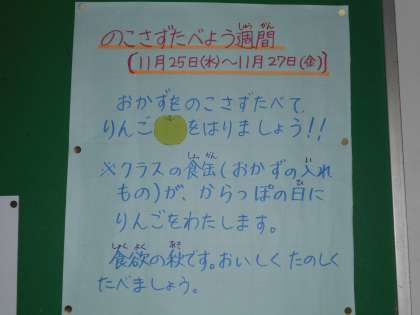 のこさずたべよう週間
〔11月25日(水)～11月27日(金)〕
おかずをのこさずたべて
りんごをはりましょう!!
※クラスの食缶(おかずの入れ
もの)が、からっぽの日に
りんごをわたします。
食欲の秋です。おいしくたのしく
たべましょう。